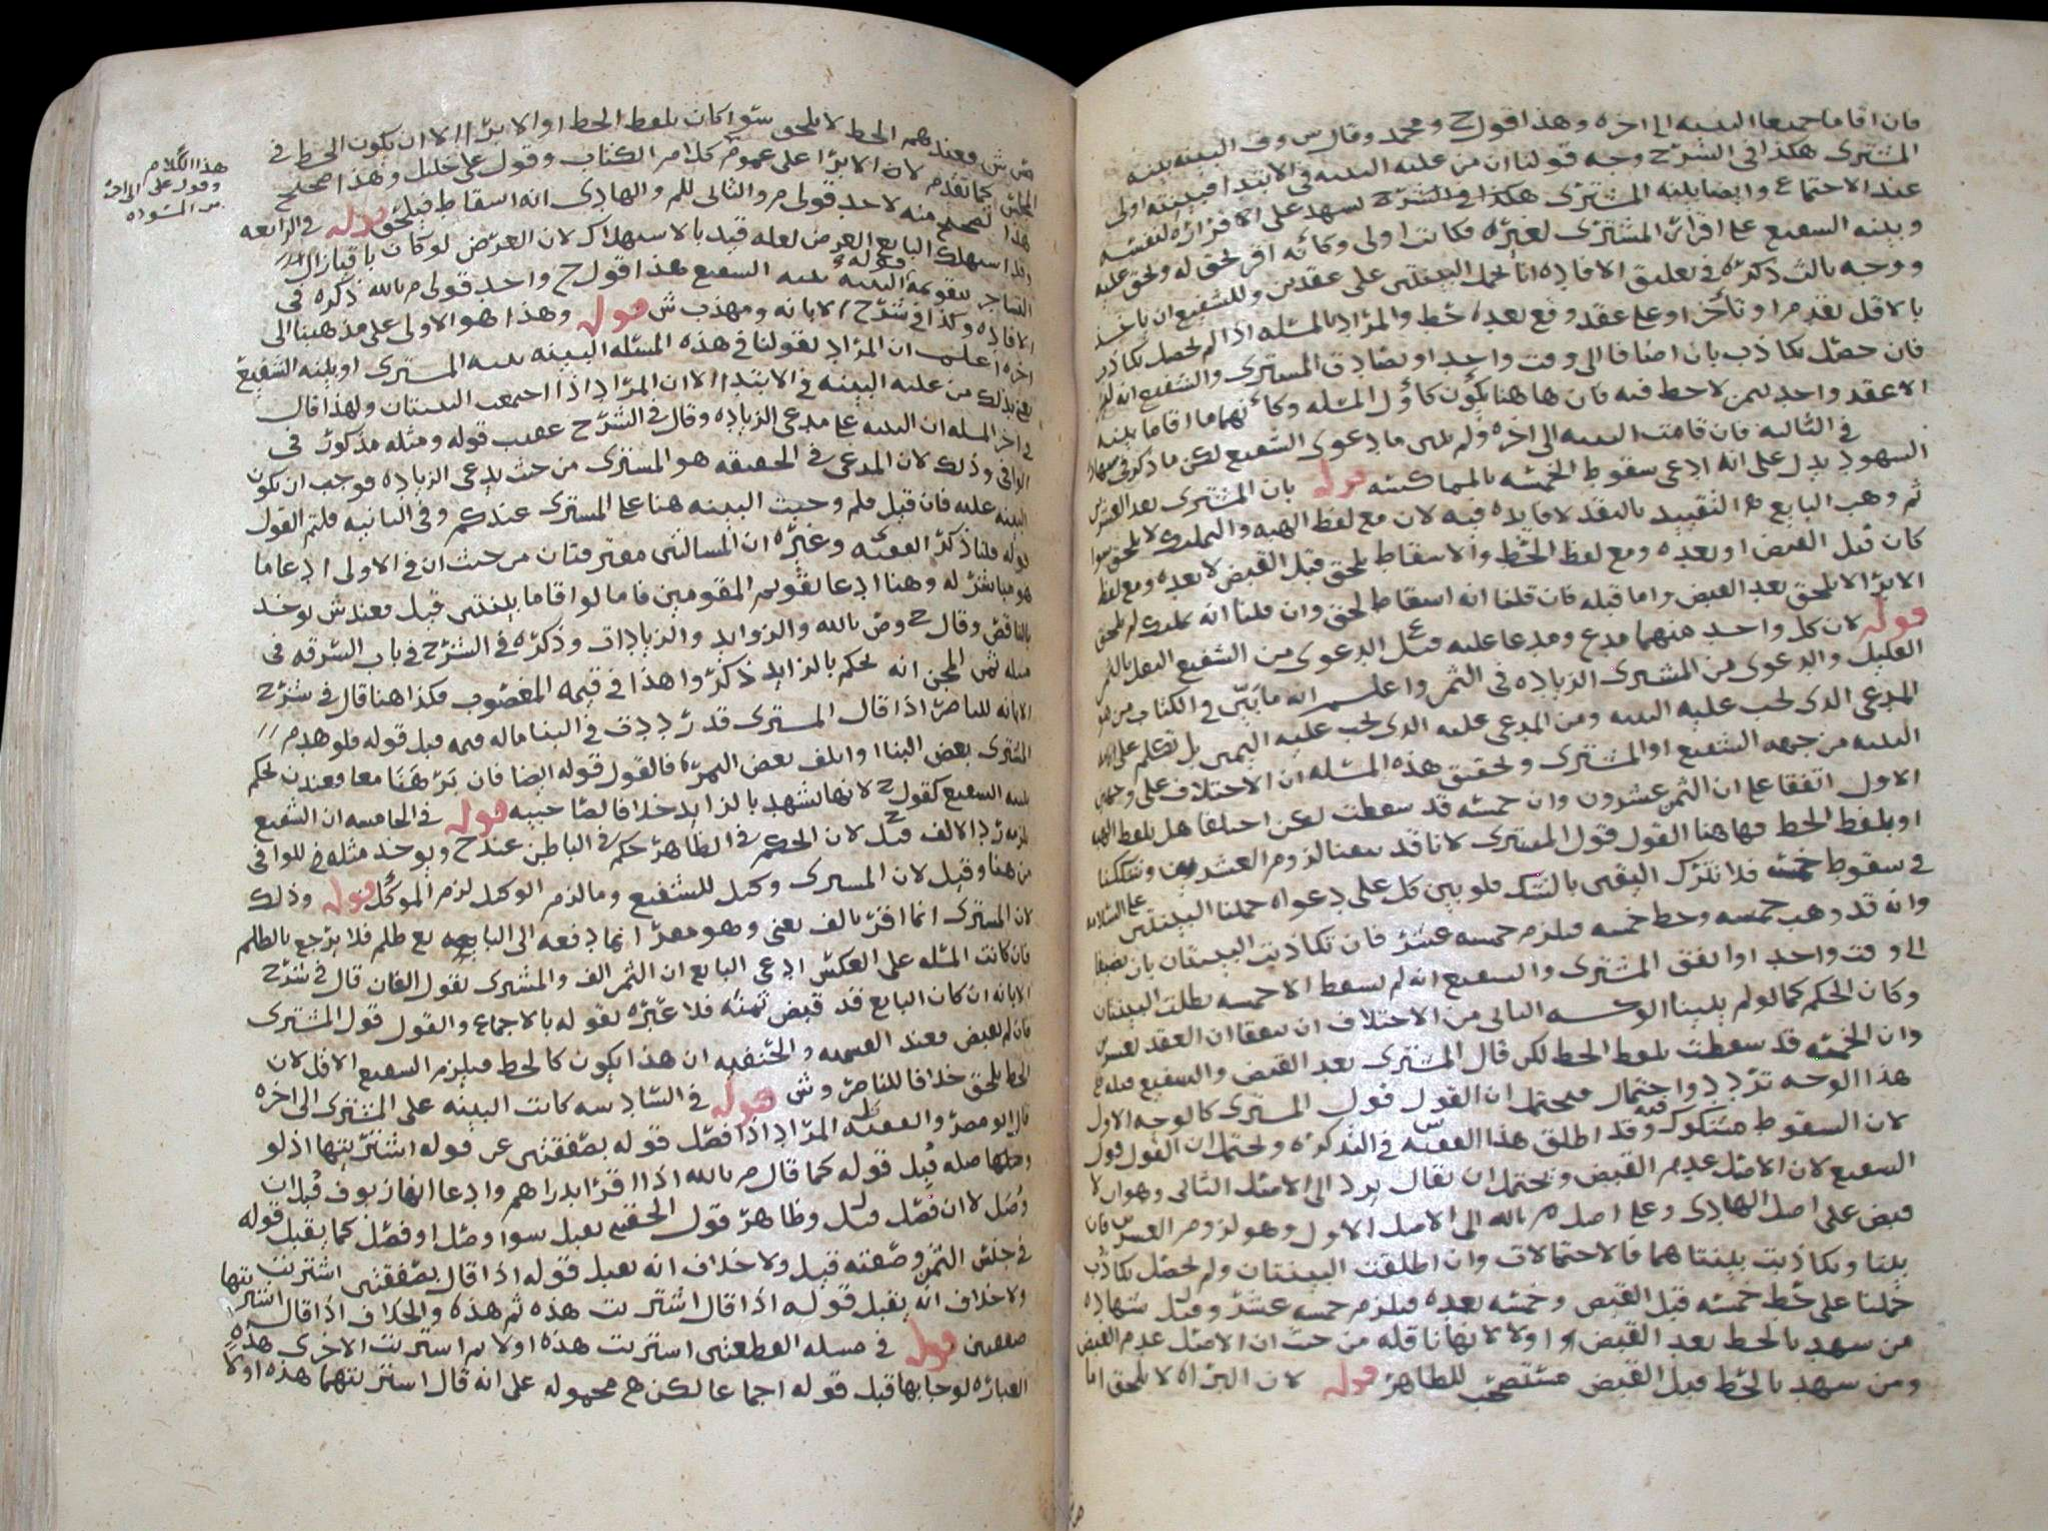 فان اقاما جميعا البينه الى اخره وهذا قول ح ومحمد وقال س وف البينه بينه
المشترى هكذا فى الشرح وجه قولنا ان من عليه البينه فى الابتدا فبينته اولى
عند الاجتماع وايضا بينه المشترى هكذا فى الشرح تشهد على الاقراره لنفسه
وبينه الشفيع على اقرار المشترى لغيره فكانت اولى وكانه اقر بحق له وبحق عليه
ووجه ثالث ذكره فى تعليق الافاده انا نحمل البينتين على عقدين وللشفيع ان ياخذ
بالاقل تقدم او تاخر او على عقد وقع بعده حط والمراد بالمسئله اذا لم يحصل تكاذب
فان حصل تكاذب بان اضافا الى وقت واحد او تصادق المشترى والشفيع انه لم
الا عقد واحد بثمن لا حط فيه فان هاهنا يكون كاول المسئله وكانهما ما اقاما بينه
فى الثالثه فان قامت البينه الى اخره ولم يبين ما دعوى الشفيع لكن ما ذكر فى شهاده
الشهود يدل على انه ادعى سقوط الخمسه بالمماكسه قوله بان المشترى بعد العشرين
ثم وهب البايع التقييد بالنقد لا فايده فيه لان مع لفظ الهبه والتمليك لا يلحق سوا
كان قبل القبض او بعده ومع لفظ الحط والاسقاط يلحق قبل القبض لا بعده ومع لفظ
الابرا لا يلحق بعد القبض واما قبله فان قلنا انه اسقاط لحق وان قلنا انه تمليك لم يلحق
قوله لان كل واحد منهما مدع ومدعا عليه قيل الدعوى من الشفيع النقل بالثمن
القليل والدعوى من المشترى الزياده فى الثمن واعلم انه ما بين فى الكتاب من هو
المدعى الذى يجب عليه البينه ومن المدعى عليه الذى يجب عليه اليمين بل تكلم على
البينه من جهه الشفيع او المشترى وتحقيق هذه المسئله ان الاختلاف على وجهين
الاول اتفقا على ان الثمن عشرون وان خمسه قد سقطت لكن اختلفا هل بلفظ الهبه
او بلفظ الحط فهاهنا القول قول المشترى لانا قد تيقنا لزوم العشرين وشككنا
فى سقوط خمسه فلا نترك اليقين بالشك فلو بين كل على دعواه حملنا البينتين على السلامه
وانه قد وهب خمسه وحط خمسه فيلزم خمسه عشر فان تكاذبت البينتان بان يضيفا
الى وقت واحد او اتفق المشترى والشفيع انه لم يسقط الا خمسه بطلت البينتان
وكان الحكم كما لو لم يبينا الوجه الثانى من الاختلاف ان يتفقا ان العقد بعشرين
وان الخمسه قد سقطت بلفظ الحط لكن قال المشترى بعد القبض والشفيع قبله فى
هذا الوجه تردد واحتمال فيحتمل ان القول قول المشترى كالوجه الاول
لان السقوط مشكوك فيه وقد اطلق هذا الفقيه س فى التذكره ويحتمل ان القول قول
الشفيع لان الاصل عدم القبض ويحتمل ان يقال يرد الى الاصل الثانى وهو ان لا
قبض على اصل الهادى وعلى اصل م بالله الى الاصل الاول وهو لزوم العشرين فان
بينا وتكاذبت بينتاهما فالاحتمالات وان اطلقت البينتان ولم يحصل تكاذب
حملنا على حط خمسه قبل القبض وخمسه بعده فيلزم خمسه عشر وقيل شهاده
من شهد بالحط بعد القبض اولا لانها ناقله من حيث ان الاصل عدم القبض
ومن شهد بالحط قبل القبض مستصحب للظاهر قوله لان البراه لا يلحق اما
ش فعندهم الحط لا يلحق سوا كان بلفظ الحط او الابرا الا ان يكون الحط فى
المجلس كما تقدم لان الابرا على عموم كلام الكتاب وقول على خليل وهذا صحيح
هذا تصحيح منه لاحد قولى م والثانى للم والهادى انه اسقاط فيلحق قوله فى الرابعه
وقد استهلك البايع العرض لعله قيد بالاستهلاك لان العرض لو كان باقيا زال
التشاجر بتقويمه قوله البينه بينه الشفيع هذا قول ح واحد قولى م بالله ذكره فى
الافاده وكذا فى شرح الابانه ومهذب ش قوله وهذا هو الاولى على مذهبنا الى
اخره اعلم ان المراد بقولنا فى هذه المسئله البينه بينه المشترى او بينه الشفيع
يعنى بذلك من عليه البينه فى الابتدا لا ان المراد اذا اجتمعت البينتان ولهذا قال
فى اخر المسله ان البينه على مدعى الزياده وقال فى الشرح عقيب قوله ومثله مذكور فى
الوافى وذلك لان المدعى فى الحقيقه هو المشترى من حيث يدعى الزياده فوجب ان تكون
البينه عليه فان قيل فلم وجبت البينه هنا على المشترى عندكم وفى الثانيه قلتم القول
قوله قلنا ذكر الفقيه وغيره ان المسالتين مفترقتان من حيث ان فى الاولى ادعا ما
هو مباشر له وهنا ادعا تقويم المقومين فاما لو اقاما بينتين قبل فعند ش يوخذ
بالناقص وقال ح وص بالله والزوايد والزيادات وذكره فى الشرح فى باب السرقه فى
مسله ثمن المجن انه يحكم بالزايد ذكروا هذا فى قيمه المغصوب فكذا هنا قال فى شرح
الابانه للناصر اذا قال المشترى قدر ددت فى البنا ماله قيمه قبل قوله فلو هدم
المشترى بعض البنا او اتلف بعض الثمره فالقول قوله ايضا فان برهنا معا فعندن يحكم
بينه الشفيع كقول ح لانها تشهد بالزايد خلافا لصاحبيه قوله فى الخامسه ان الشفيع
يلزمه رد الالف قيل ح لان الحكم فى الظاهر حكم فى الباطن عند ح ويوخذ مثله للوافى
من هنا وقيل لان المشترى وكيل للشفيع وما لزم الوكيل لزم الموكل قوله وذلك
لان المشترى انما اقر بالف يعنى وهو مقر انما دفعه الى البايع مع ظلم فلا يرجع بالظلم
فان كانت المسله على العكس ادعى البايع ان الثمن الف والمشترى يقول الفان قال فى شرح
الابانه ان كان البايع قد قبض ثمنه فلا عبره بقوله بالاجماع والقول قول المشترى
فان لم يقبض فعند القسميه والحنفيه ان هذا يكون كالحط فيلزم الشفيع الاقل لان
الحط يلحق خلافا للناصر وش قوله فى السادسه كانت البينه على المشترى الى اخره
قال ابو مضر والفقيه ط المراد اذا فصل قوله بصفقتين عن قوله اشتريتها اذ لو
وصلها صله قبل قوله كما قال م بالله اذا اقر بدراهم وادعا انها زيوف قبل ان
وصل لا ان فصل قيل ل وظاهر قول الحقينى يقبل سوا وصل او فصل كما يقبل قوله
فى جنس الثمن وصفته قبل ولا خلاف انه يقبل قوله اذا قال بصفقتين اشتريتها
ولا خلاف انه يقبل قوله اذا قال اشتريت هذه ثم هذه والخلاف اذا قال اشتريتها
صفقتين قوله فى مسله القطعتين اشتريت هذه اولا ثم اشتريت الاخرى هذه
العباره لو جا بها قبل قوله اجماعا لكن هى محموله على انه قال اشتريتهما هذه اولا
هذا الكلام
وقول على الى اخره
من السواد